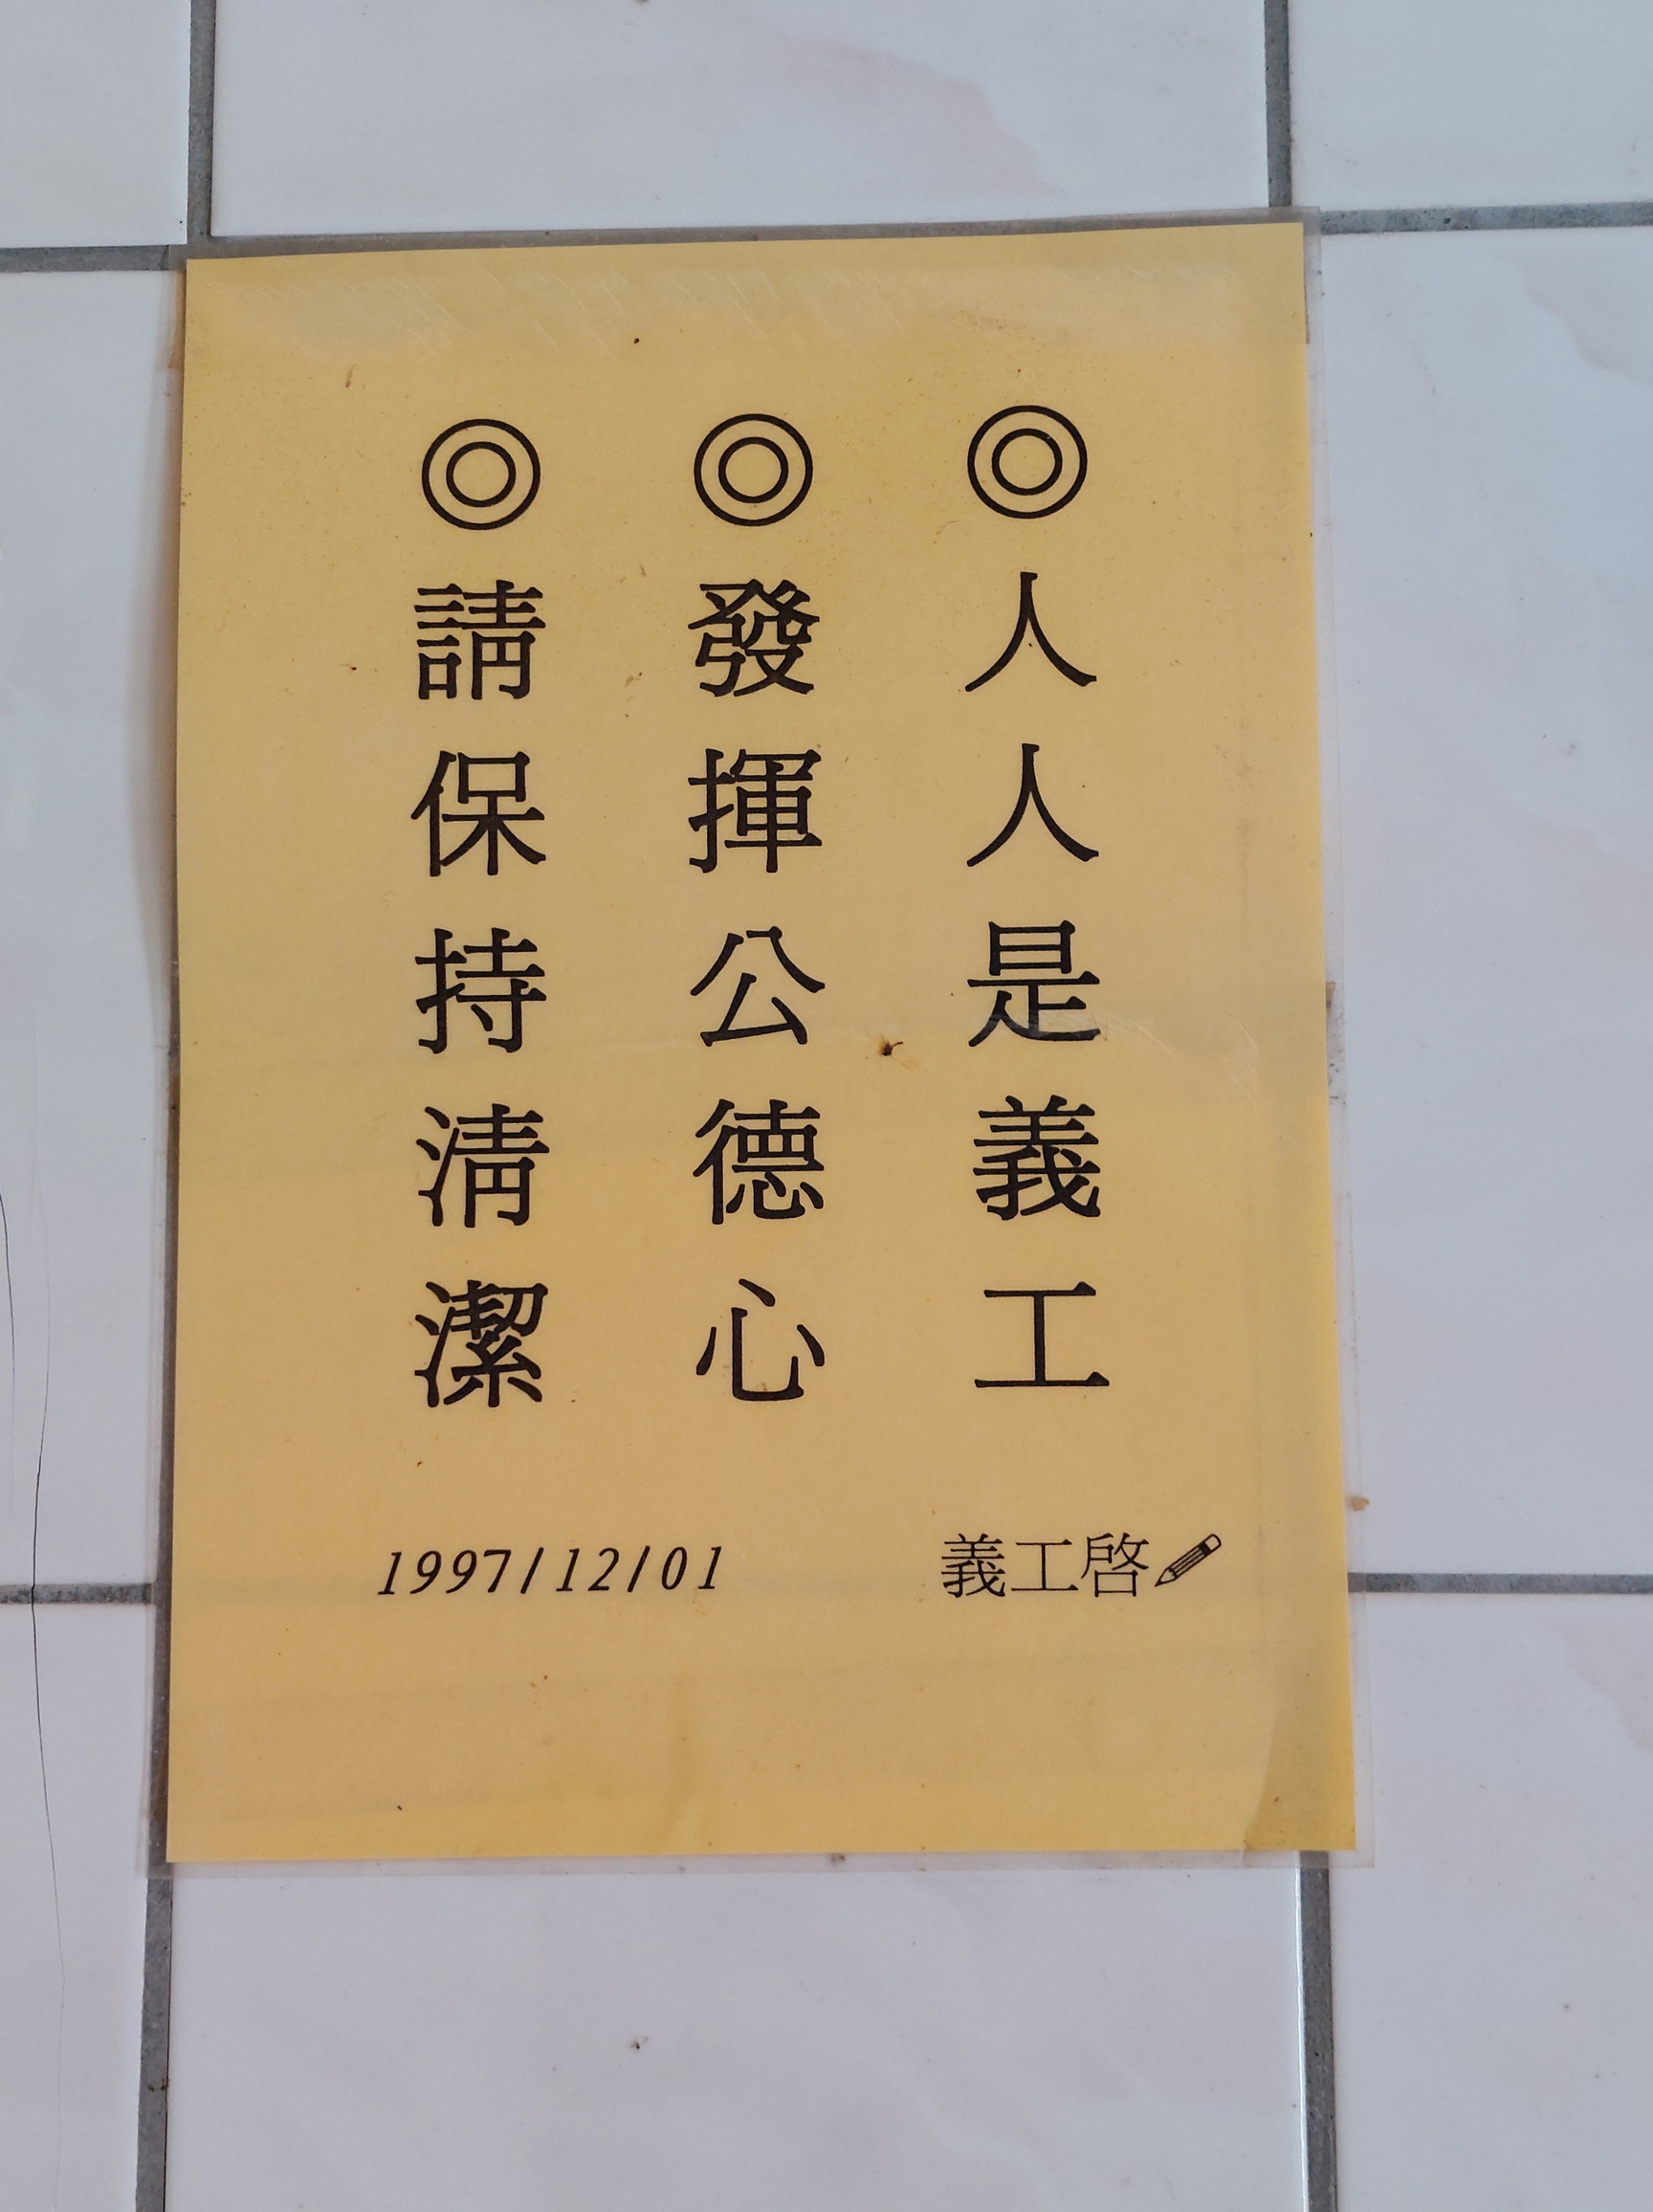 ◎人人是義工
◎發揮公德心
◎請保持清潔
義工啓✏
1997/12/01